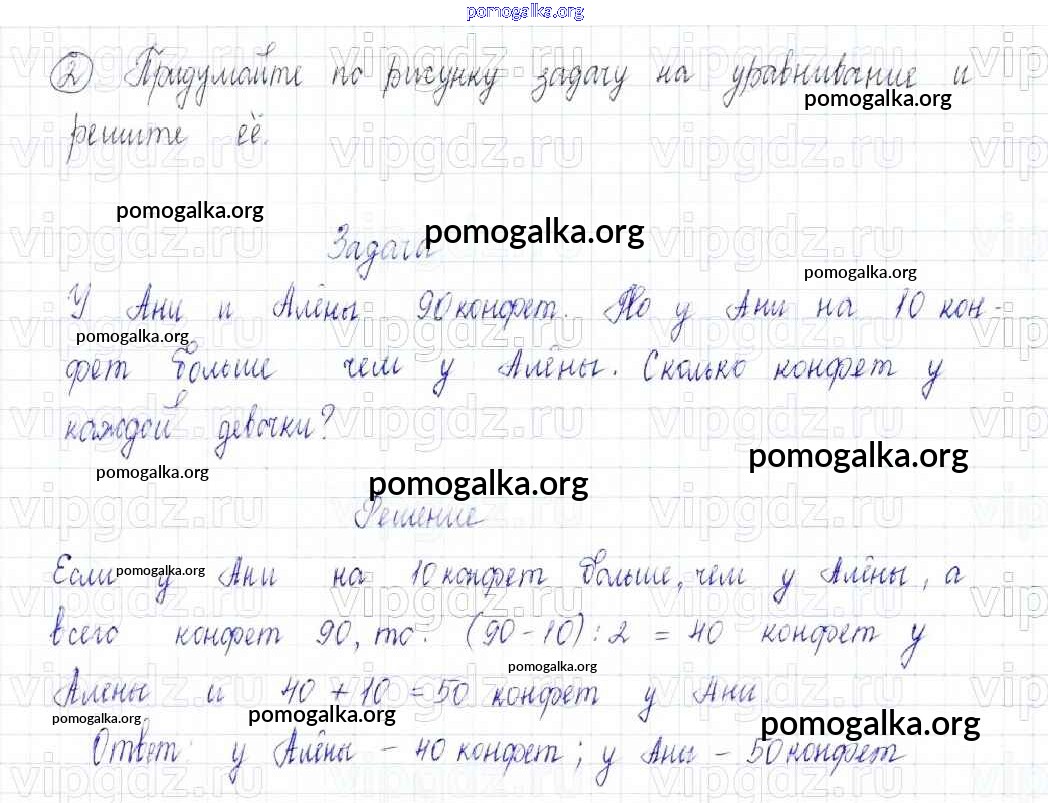 pomogalka.org
② Придумайте по рисунку задачу на уравнивание и
pomogalka.org
решите её.
vipgdz.ru vipgdz.ru vipgdz.ru vip
pomogalka.org
Задача pomogalka.org
pomogalka.org
У Ани и Алёны 90 конфет. Но у Ани на 10 кон-
pomogalka.org
фет больше чем у Алёны. Сколько конфет у
каждой девочки?
pomogalka.org pomogalka.org pomogalka.org
Решение
Если у Ани на 10 конфет больше, чем у Алёны, а
pomogalka.org
всего конфет 90, то: (90-10):2 = 40 конфет у
pomogalka.org
Алены и 40 + 10 = 50 конфет у Ани.
pomogalka.org pomogalka.org pomogalka.org
Ответ: у Алёны - 40 конфет; у Аны - 50 конфет